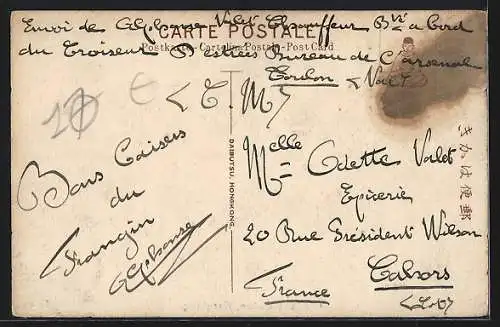 Envoi de Alphonse Valet Chauffeur Bté a bord
CARTE POSTALE
Postkarte-Cartolina Postale-Post Card
du Croiseur Destrées Bureau de l'arsenal
Toulon Var
C. M.
Melle Odette Valet
Epicerie
20 Rue Président Wilson
Cahors
France
Lot
Bons Baisers
du
Frangin
Alphonse
DAIBUTSU, HONGKONG.
きかは便郵